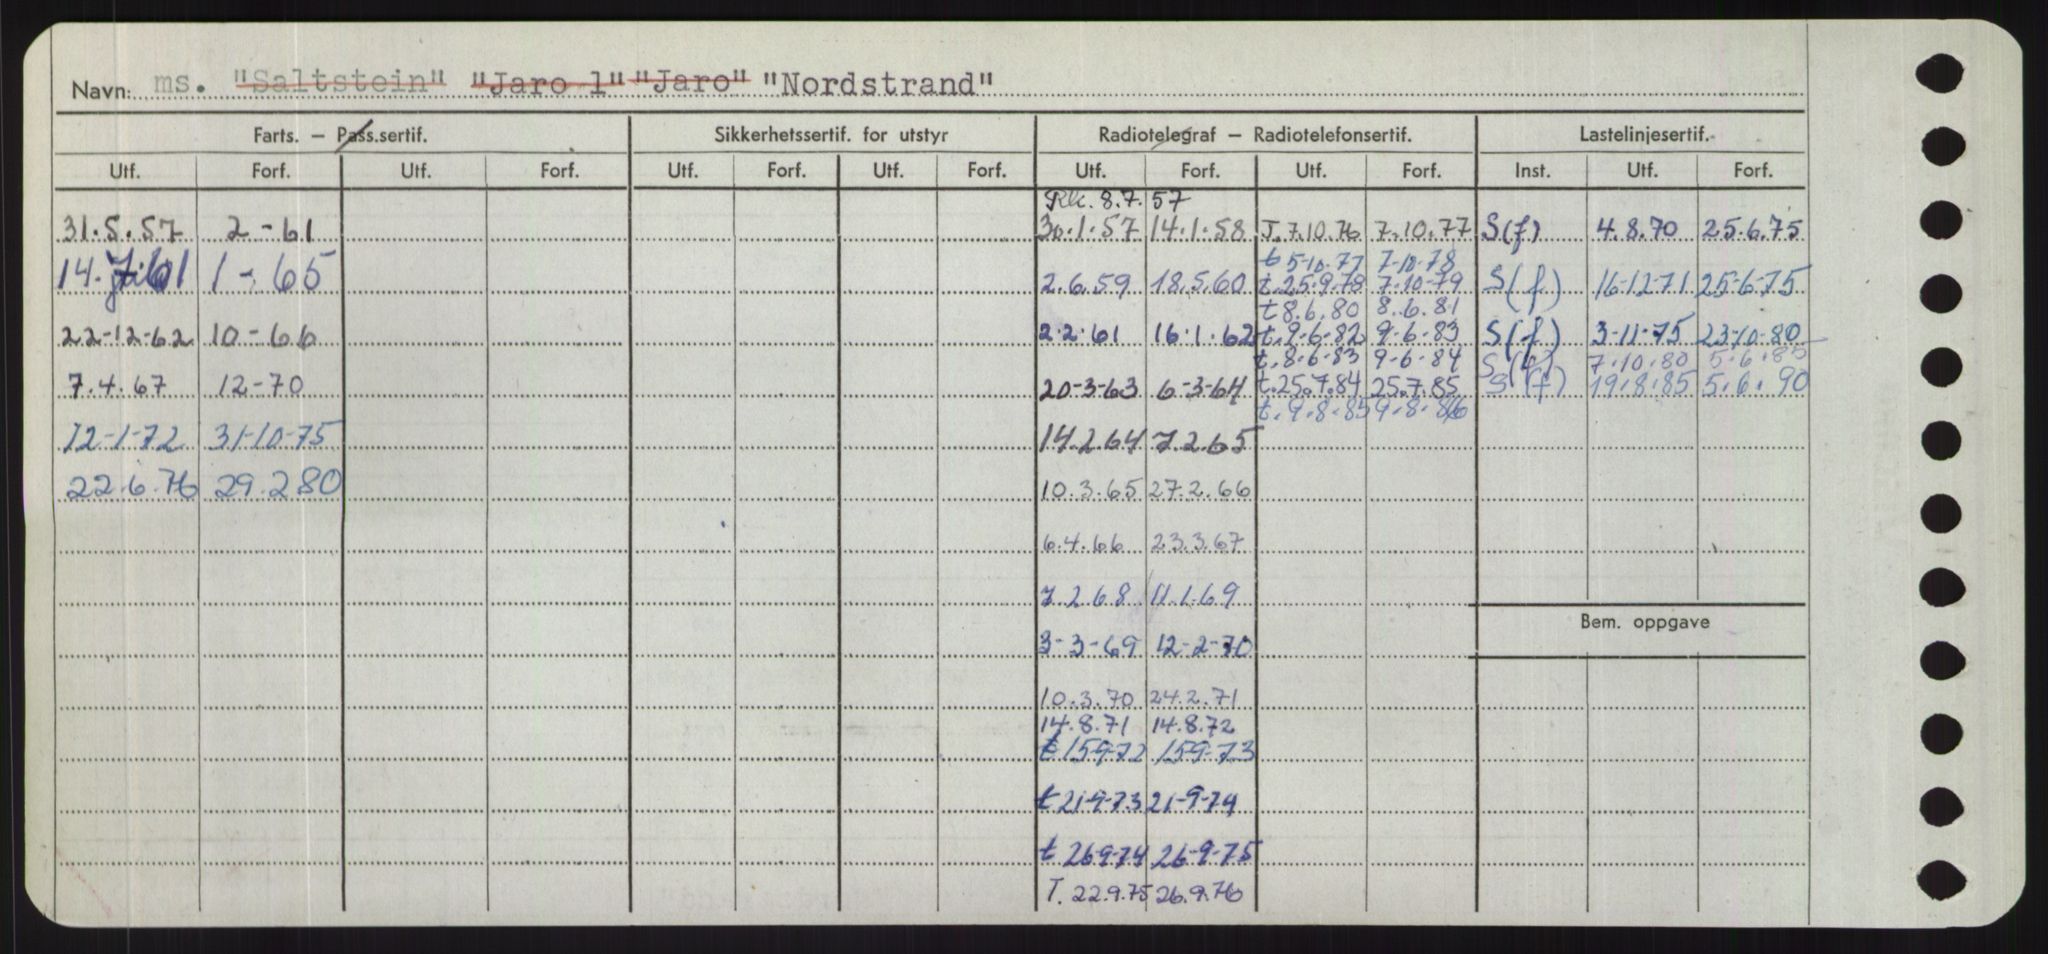 Navn: ms. "Saltstein" "Jaro 1" "Jaro" "Nordstrand"
Farts. – Pass.sertif. Sikkerhetssertif. for utstyr Radiotelegraf – Radiotelefonsertif. Lastelinjesertif.
Utf. Forf. Utf. Forf. Utf. Forf. Utf. Forf. Utf. Forf. Utf. Forf. Inst. Utf. Forf.
Rk. 8.7.57
31.5.57 2-61 30.1.57 14.1.58 T.7.10.76 7.10.77 S(f) 4.8.70 25.6.75
t 5-10-77 7-10-78
14. 61 1-65 2.6.59 18.5.60 t.25.9.78 7-10-79 S(f) 16-12-71 25-6-75
t 8.6.80 8.6.81
22-12-62 10-66 2.2.61 16.1.62 t.9-6-82 9-6-83 S(f) 3-11-75 23-10-80
t.8-6-83 9-6-84 S(f) 7.10.80 5.6.85
7.4.67 12-70 20-3-63 6-3-64 t.25.7.84 25.7.85 S(f) 19.8.85 5.6.90
t.9.8.85 9.8.86
12-1-72 31-10-75 14.2.64 7.2.65
22.6.76 29.2.80 10.3.65 27.2.66
6.4.66 23.3.67
7.2.68 11.1.69
Bem. oppgave
3-3-69 12-2-70
10.3.70 24.2.71
14.8.71 14.8.72
t 15-9-72 15-9-73
t 21-9-73 21-9-74
t 26-9-74 26-9-75
T. 22.9.75 26.9.76